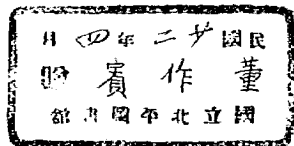 民國廿二年四月
董作賓贈
國立北平圖書館